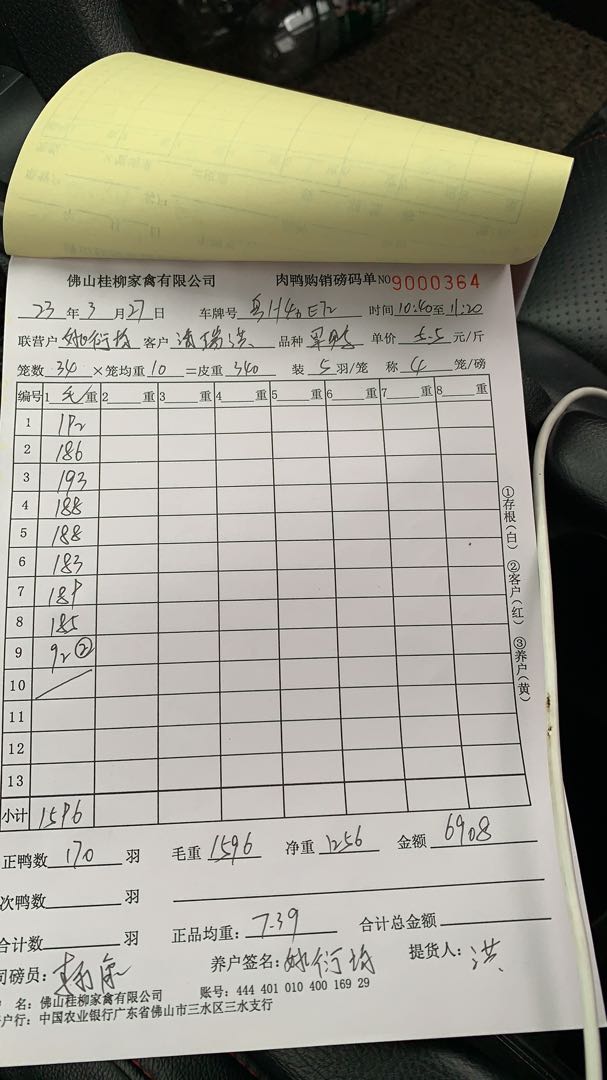 佛山桂柳家禽有限公司 肉鸭购销磅码单 NO 9000364
23 年 3 月 27 日 车牌号 时间 10:40 至 11:20
联营户 客户 品种 单价 5.5 元/斤
笼数 34 ×笼均重 10 =皮重 340 装 5 羽/笼 称 4 笼/磅
编号 1 毛 重 2 重 3 重 4 重 5 重 6 重 7 重 8 重
1 192
2 186
3 193
4 188
5 188
6 183
7 189
8 185
9 92 ②
10
11
12
13
小计 1596
正鸭数 170 羽 毛重 1596 净重 1256 金额 6908
次鸭数 羽
合计数 羽 正品均重: 7.39 合计总金额
司磅员: 养户签名: 提货人: 洪
名: 佛山桂柳家禽有限公司 账号: 444 401 010 400 169 29
户行: 中国农业银行广东省佛山市三水区三水支行
①存根(白) ②客户(红) ③养户(黄)